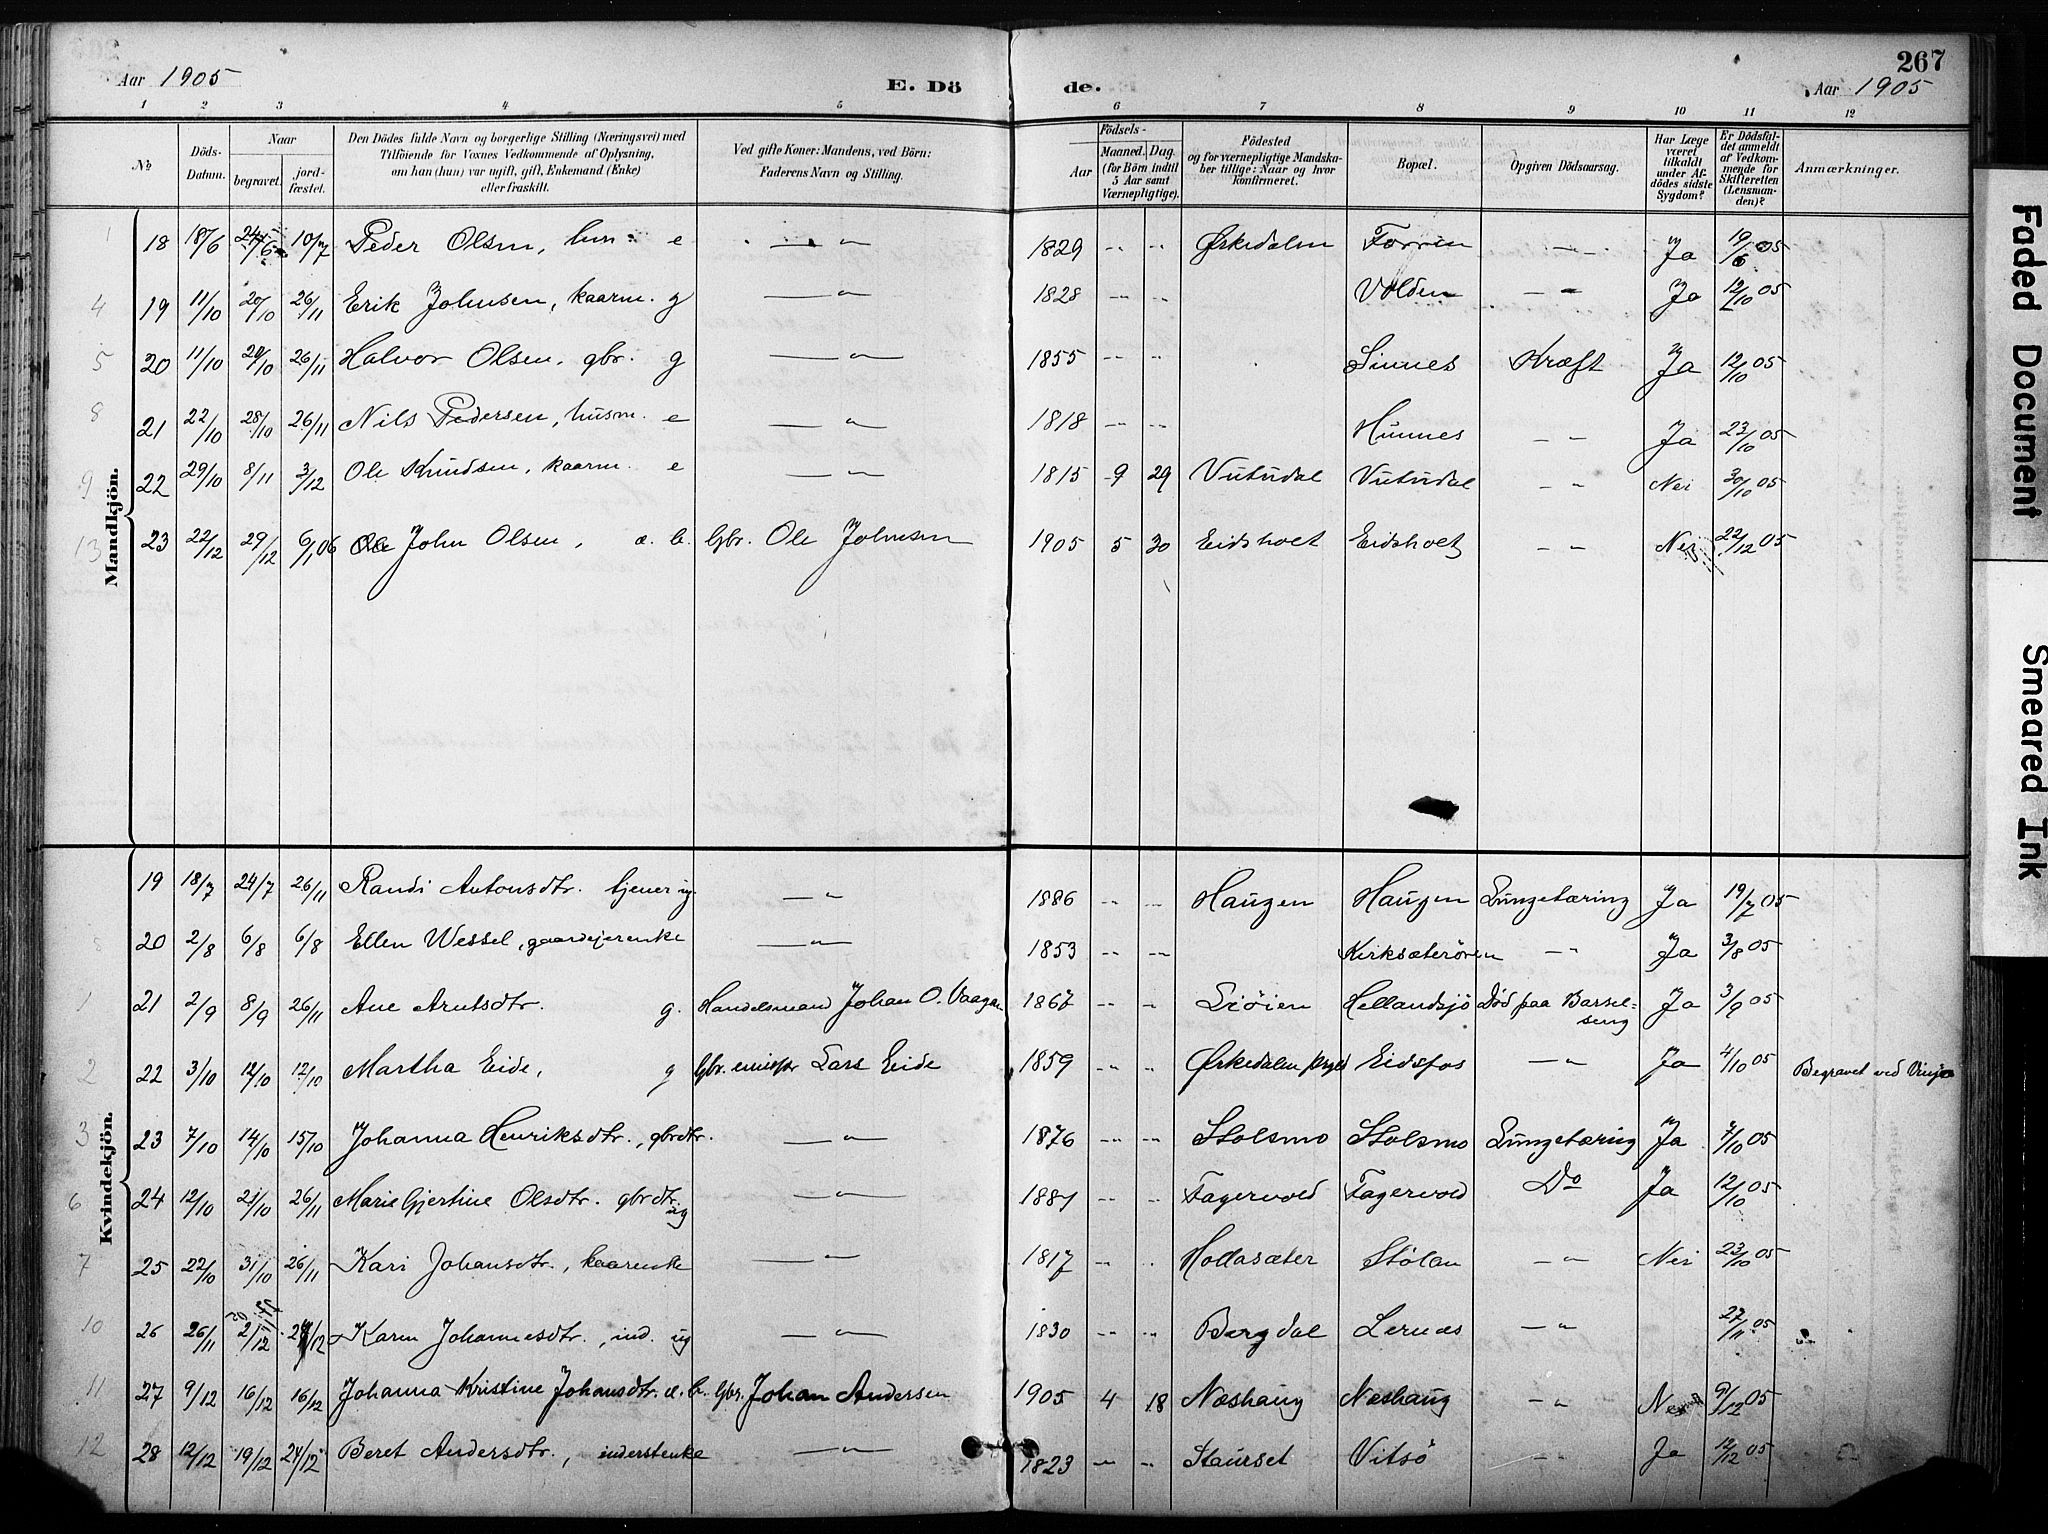 267
Aar 1905 E. Dö de. Aar 1905
1 2 3 4 5 6 7 8 9 10 11 12
No.
Döds-Datum.
Naar
begravet. jord-fæstet.
Den Dödes fulde Navn og borgerlige Stilling (Næringsvei) med
Tilföiende for Voxnes Vedkommende af Oplysning,
om han (hun) var ugift, gift, Enkemand (Enke)
eller fraskilt.
Ved gifte Koner: Mandens, ved Börn:
Faderens Navn og Stilling.
Födsels-
Aar Maaned. Dag.
(for Börn indtil
5 Aar samt
Værnepligtige).
Födested
og for værnepligtige Mandska-
ber tillige: Naar og hvor
konfirmeret.
Bopæl.
Opgiven Dödsaarsag.
Har Læge
været
tilkaldt
under Af-
dödes sidste
Sygdom?
Er Dödsfal-
det anmeldt
af Vedkom-
mende for
Skifteretten
(Lensman-
den)?
Anmærkninger.
Mandkjön.
1 18 18/6 24/6 10/7 Peder Olsen, hus. e — " — 1829 " " Ørkedalen Forren — " Ja 19/6 05
4 19 11/10 20/10 26/11 Erik Johnsen, kaarm. g — " — 1828 " " Volden — " Ja 12/10 05
5 20 11/10 20/10 26/11 Halvor Olsen, gbr. g — " — 1855 " " Sinnes Kræft Ja 12/10 05
8 21 22/10 28/10 26/11 Nils Pedersen, husm. e — " — 1818 " " Hunnes — " Ja 23/10 05
9 22 29/10 8/11 3/12 Ole Knudsen, kaarm. e — " — 1815 9 29 Vutudal Vutudal — " Nei 30/10 05
13 23 22/12 29/12 6/1 06 John Olsen, æ. b. Gbr. Ole Johnsen 1905 5 30 Eidsholt Eidsholt — " Nei 22/12 05
Kvindekjön.
19 18/7 24/7 26/11 Randi Antonsdtr. tjener ug. — " 1886 " " Haugen Haugen Lungetæring Ja 19/7 05
20 2/8 6/8 6/8 Ellen Wessel, gaardejerenke — " — 1853 " " Kirksæterøren — " Ja 3/8 05
1 21 2/9 8/9 26/11 Ane Arntsdtr. g. Handelsmand Johan O. Vaagan 1867 " " Hellandsjö Död paa Barsel-
seng Ja 3/9 05
2 22 3/10 12/10 12/10 Martha Eide, g Gbr. Lars Eide 1859 " " Ørkedalen Eidsfos — " Ja 4/10 05 Begravet ved Vinje
3 23 7/10 14/10 15/10 Johanna Henriksdtr., gbrdtr. — " — 1876 " " Stolsmo Stolsmo Lungetæring Ja 7/10 05
6 24 12/10 21/10 26/11 Marie Gjertine Olsdtr. gbrdtr. ug — " — 1887 " " Fagervold Fagervold Do Ja 12/10 05
7 25 22/10 31/10 26/11 Kari Johansdtr., kaarenke — " — 1817 " " Hollasæter Stölan — " Nei 23/10 05
10 26 26/11 2/12 Karen Johannesdtr., ind. ug — " — 1830 " " Bergdal Lernæs — " 27/11 05
11 27 9/12 16/12 16/12 Johanna Kristine Johansdtr. æ. b. Gbr. Johan Andersen 1905 4 18 Næshaug Næshaug — " Nei 9/12 05
12 28 12/12 19/12 24/12 Beret Andersdtr., inderstenke — " — 1823 " " Staurset Vitsö — " Ja 12/12 05
Faded Document
Smeared Ink